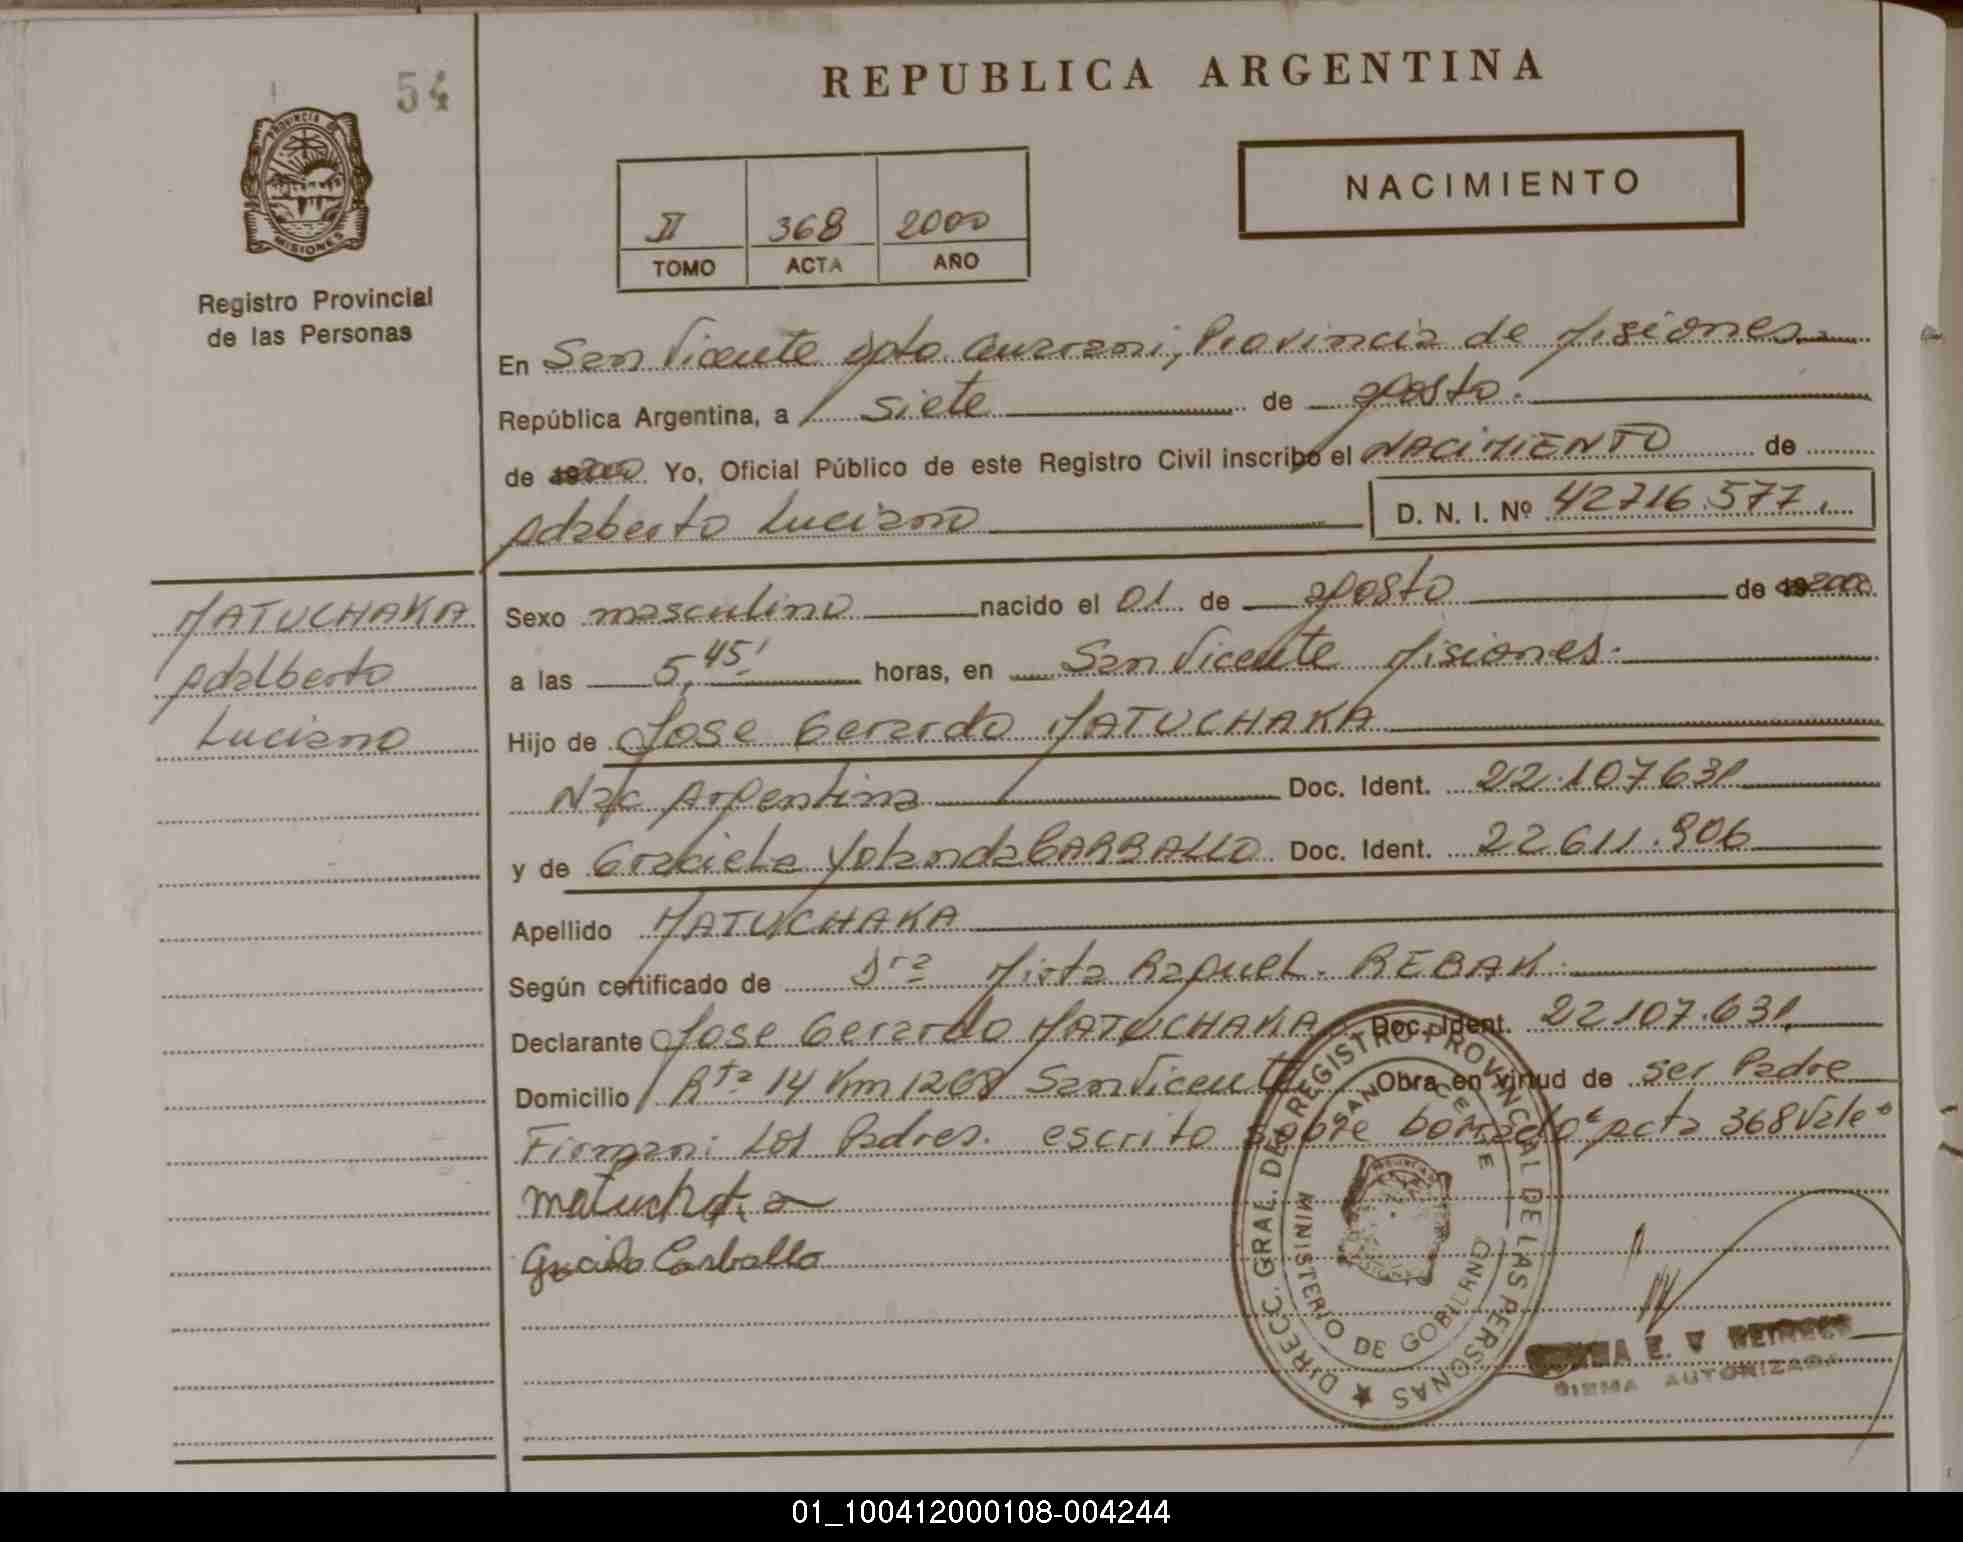 54
REPUBLICA ARGENTINA
PROVINCIA DE
MISIONES
Registro Provincial
de las Personas
II 368 2000
TOMO ACTA AÑO
NACIMIENTO
En San Vicente dpto. Guarani, Provincia de Misiones.
República Argentina, a siete de agosto.
de 2000 Yo, Oficial Público de este Registro Civil inscribo el NACIMIENTO de
Adalberto Luciano D. N. I. Nº 42716.577.
MATUCHAKA
Adalberto
Luciano
Sexo masculino nacido el 01 de agosto de 2000
a las 5,45' horas, en San Vicente Misiones.
Hijo de Jose Gerardo MATUCHAKA
Nac Argentina Doc. Ident. 22.107.631
y de Graciela Yolanda CARBALLO Doc. Ident. 22.611.906
Apellido MATUCHAKA
Según certificado de Dra Mirta Raquel. REBAK.
Declarante Jose Gerardo MATUCHAKA Doc. Ident. 22.107.631
Domicilio Rta 14 Km 1268 San Vicente Obra en virtud de ser Padre
Firman: Los Padres. escrito sobre borrado "acta 368 Vale"
Carballo
DIRECC. GRAL. DEL REGISTRO PROVINCIAL DE LAS PERSONAS
SAN VICENTE
MINISTERIO DE GOBIERNO
E. V.
FIRMA AUTORIZADA
01_100412000108-004244